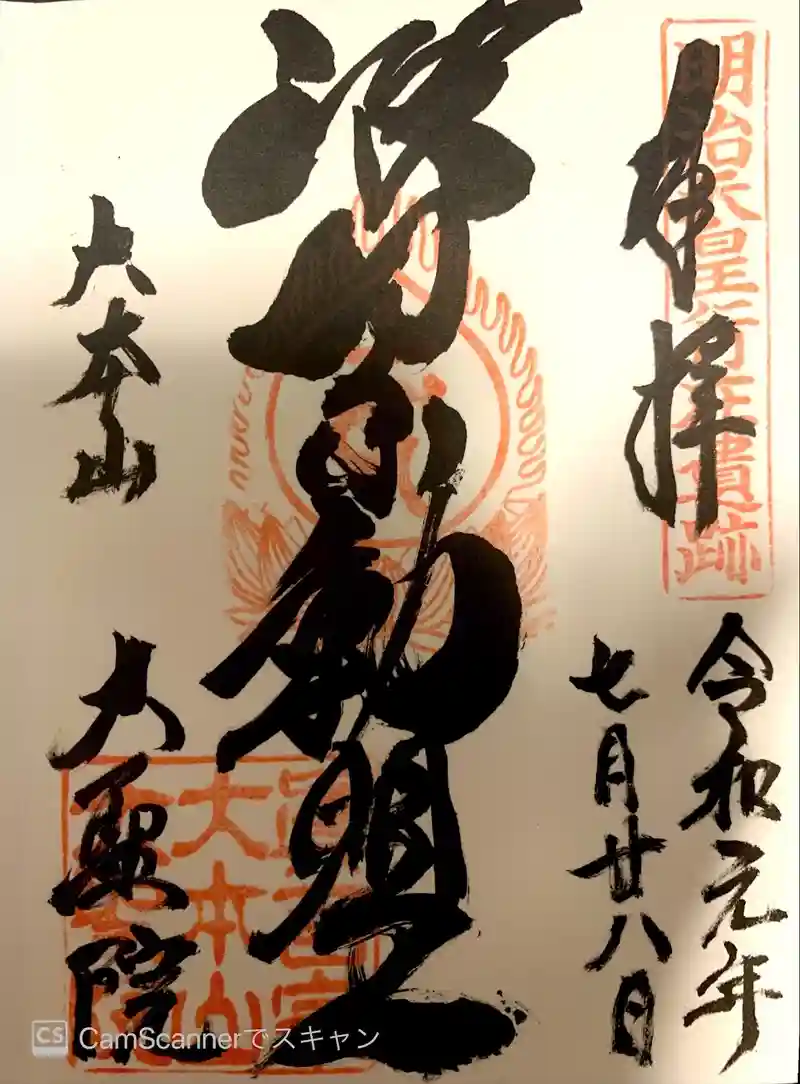 明治天皇行在遺跡
奉拝
令和元年
七月廿八日
波切不動明王
大本山
大聖院
真言宗
大本山
大聖院
CS CamScannerでスキャン